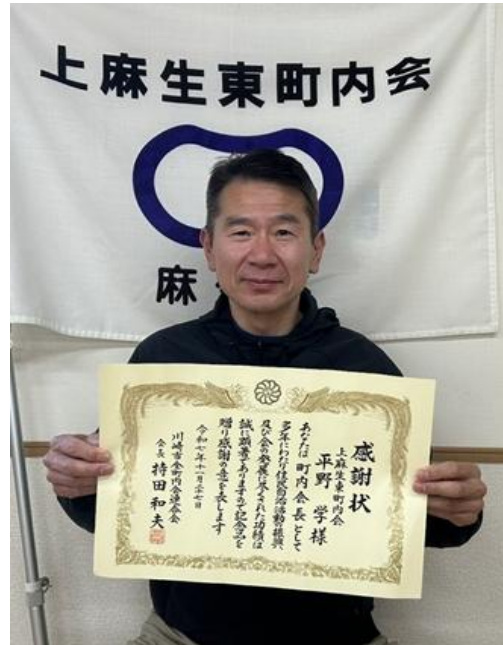 上麻生東町内会
麻
感謝状
上麻生東町内会
平野 学 様
あなたは町内会長として
多年にわたり住民自治活動の振興
及び会の発展に尽くされた功績は
誠に顕著でありますので記念品を
贈り感謝の意を表します
令和七年十一月二十七日
川崎市全町内会連合会
会長 持田和夫